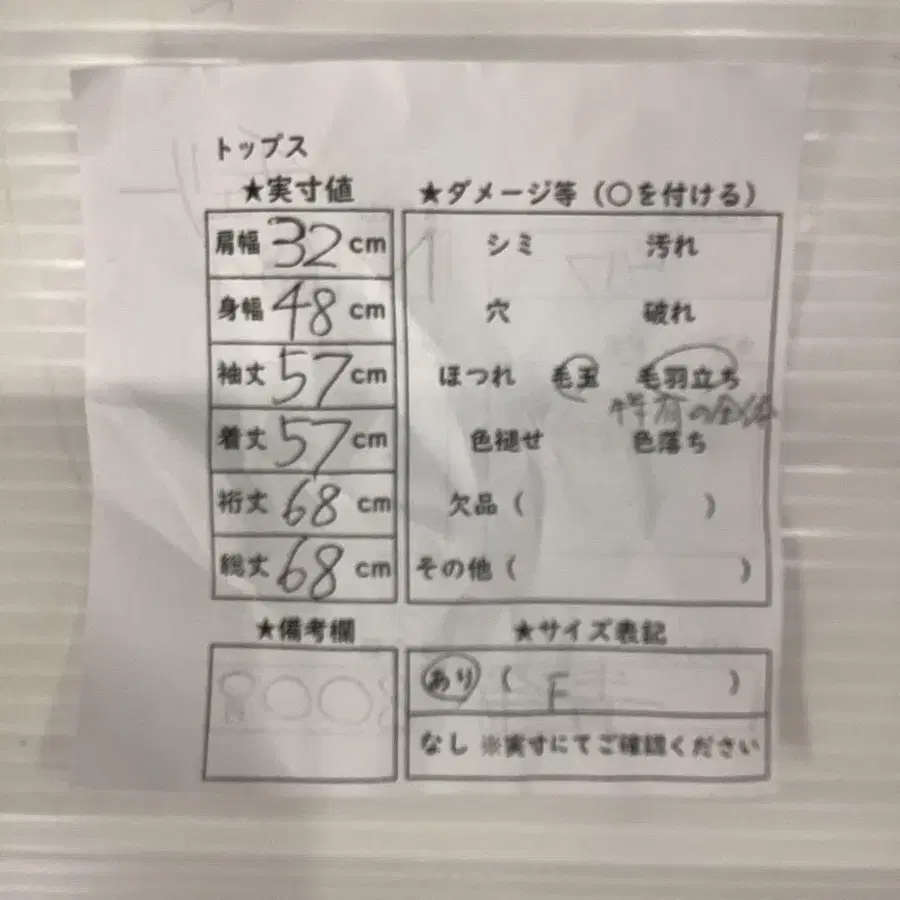 トップス
★実寸値
肩幅 32 cm
身幅 48 cm
袖丈 57 cm
着丈 57 cm
裄丈 68 cm
総丈 68 cm
★備考欄
★ダメージ等（○を付ける）
シミ 汚れ
穴 破れ
ほつれ 毛玉 毛羽立ち
特有の全体
色褪せ 色落ち
欠品（ ）
その他（ ）
★サイズ表記
あり（ F ）
なし ※実寸にてご確認ください